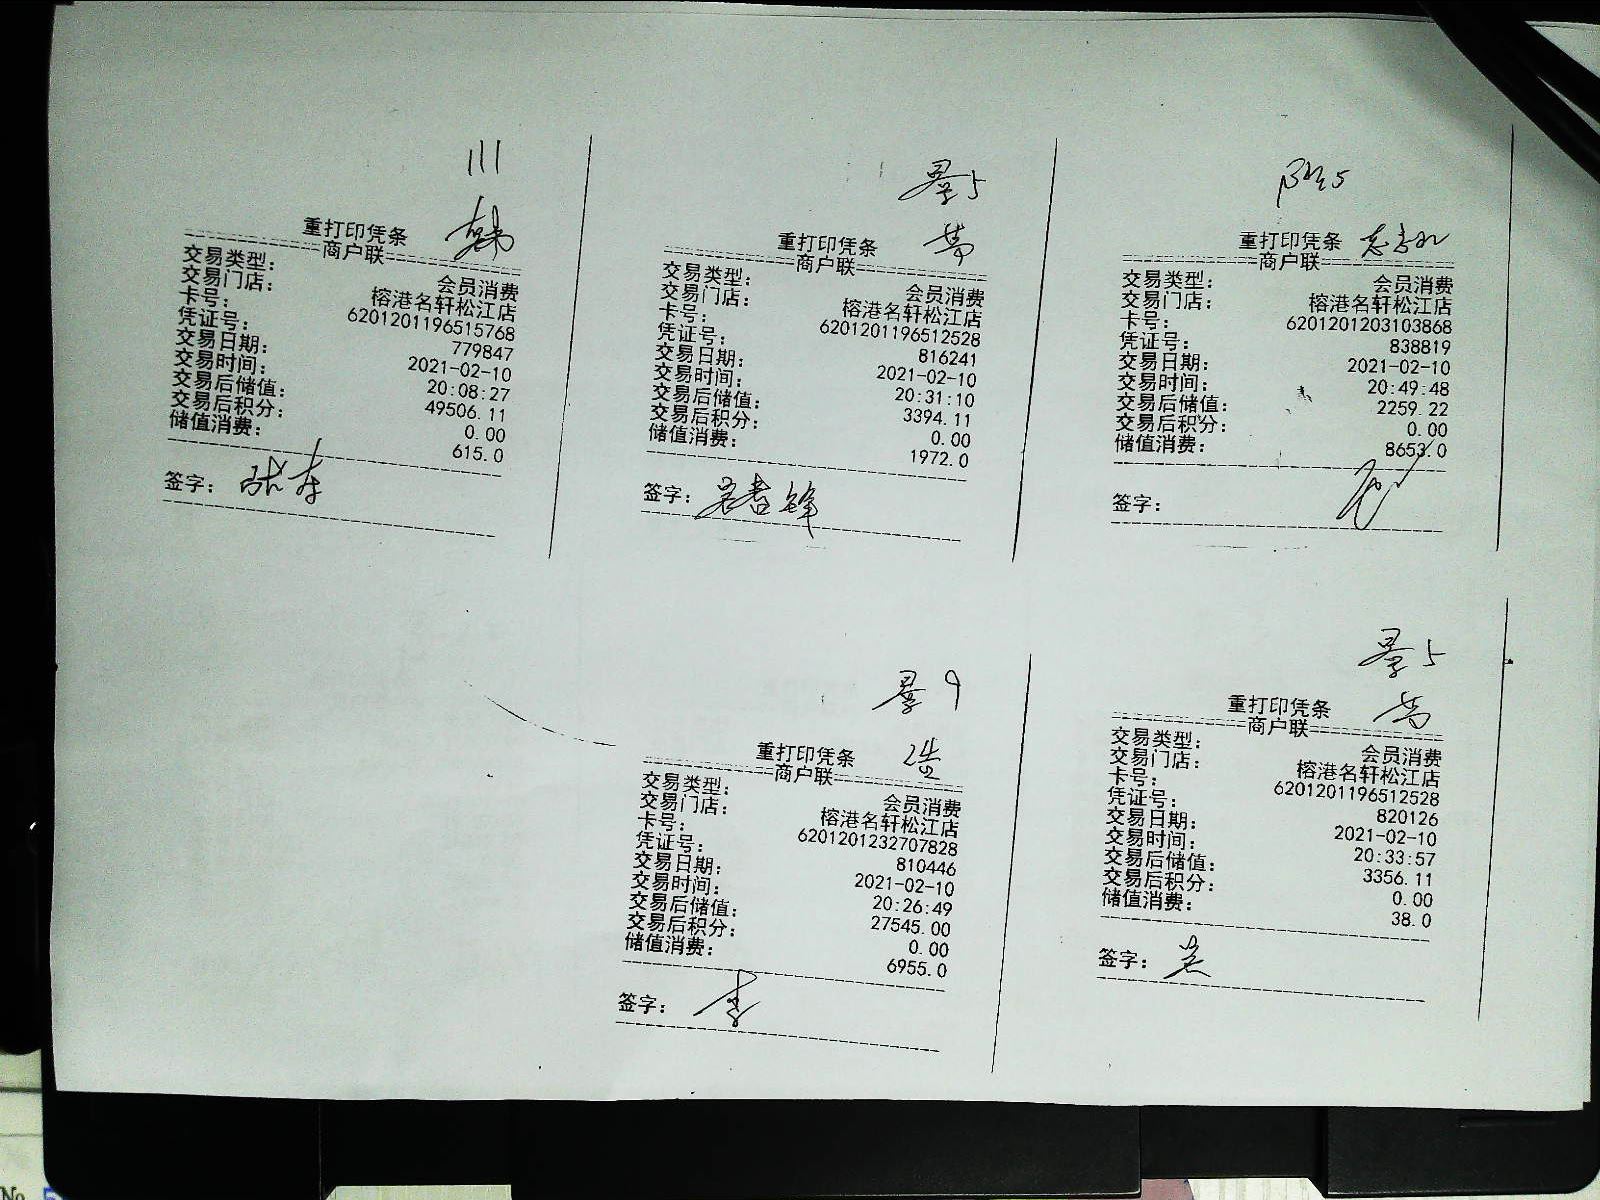 111
重打印凭条
商户联
交易类型: 会员消费
交易门店: 榕港名轩松江店
卡号: 6201201196515768
凭证号: 779847
交易日期: 2021-02-10
交易时间: 20:08:27
交易后储值: 49506.11
交易后积分: 0.00
储值消费: 615.0
签字:
景5
重打印凭条
商户联
交易类型: 会员消费
交易门店: 榕港名轩松江店
卡号: 6201201196512528
凭证号: 816241
交易日期: 2021-02-10
交易时间: 20:31:10
交易后储值: 3394.11
交易后积分: 0.00
储值消费: 1972.0
签字:
重打印凭条
商户联
交易类型: 会员消费
交易门店: 榕港名轩松江店
卡号: 6201201203103868
凭证号: 838819
交易日期: 2021-02-10
交易时间: 20:49:48
交易后储值: 2259.22
交易后积分: 0.00
储值消费: 8653.0
签字:
景9
重打印凭条
商户联
交易类型: 会员消费
交易门店: 榕港名轩松江店
卡号: 6201201232707828
凭证号: 810446
交易日期: 2021-02-10
交易时间: 20:26:49
交易后储值: 27545.00
交易后积分: 0.00
储值消费: 6955.0
签字: 李
景5
重打印凭条
商户联
交易类型: 会员消费
交易门店: 榕港名轩松江店
卡号: 6201201196512528
凭证号: 820126
交易日期: 2021-02-10
交易时间: 20:33:57
交易后储值: 3356.11
交易后积分: 0.00
储值消费: 38.0
签字:
No